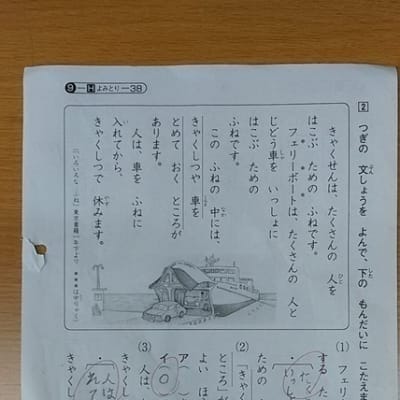 9-Hよみとり-38
2 つぎの 文しょうを よんで、下の もんだいに こたえま
きゃくせんは、たくさんの 人を
はこぶ ための ふねです。
フェリーボートは、たくさんの 人と
じどう車を いっしょに
はこぶ ための
ふねです。
この ふねの 中には、
きゃくしつや 車を
とめて おく ところが
あります。
人は、車を ふねに
入れてから、
きゃくしつで 休みます。
「いろいろな ふね」東京書籍
(1) フェリ
する た
ための
(2) 「きゃく
ところ」が
よい ほ
ア(
イ(○
(3) 人は
きゃくし